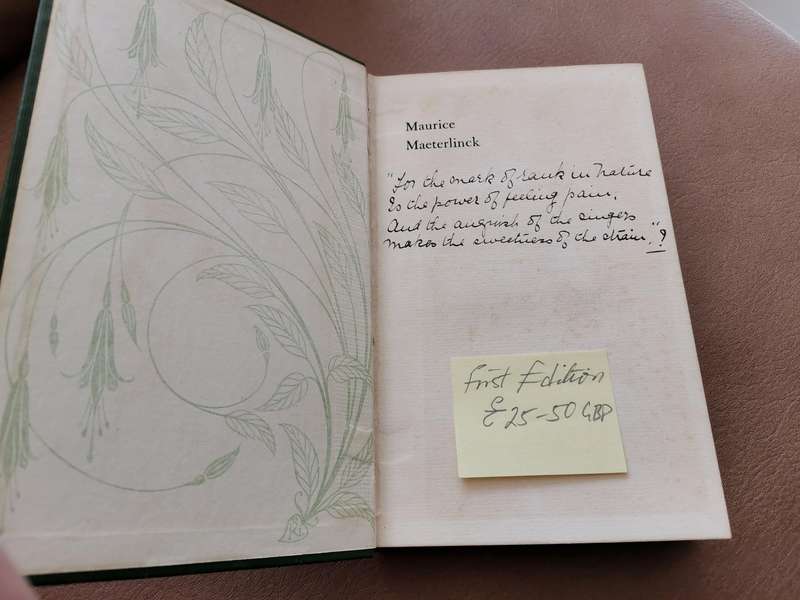 Maurice
Maeterlinck
"For the mark of rank in nature
Is the power of feeling pain,
And the anguish of the singers
makes the sweetness of the strain."?
First Edition
£25-50 GBP